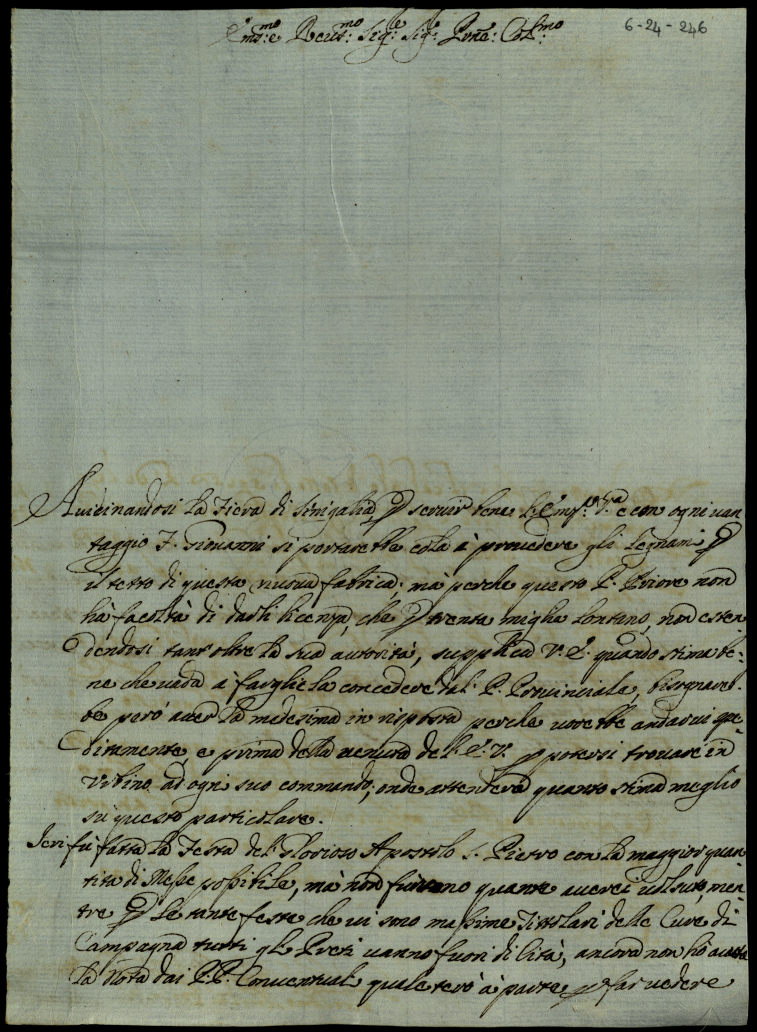 6-24-246
Em:mo e Reu:mo Sig:re Sig:re Pnẽ: Col:mo
Auicinandosi la Fiera di Sinigalia, p seruir bene l'Em: V:ra e con ogni uan
taggio F. Giouanni si portarebbe colà à prouedere gli Legnami p
il tetto di questa nuoua fabrica; mà perche questo P. Priore non
hà facoltà di darli licenza, che p trenta miglia lontano, non esten
dendosi tant'oltre la sua autorità, supplica V. E. quando stima be:
ne che uada à fargliela concedere dal P. Prouinciale, bisognareb:
be però auer la medesima in risposta perche uorrebbe andarui spe
ditamente, e prima della uenuta dell'E. V. p potersi trouare in
Vrbino ad ogni suo commando; onde attenderà quanto stima meglio
sù questo particolare.
Ieri fù fatta la Festa del Glorioso Apostolo S. Pietro con la maggior quan
tità di Messe possibile, mà non furono quante auerei uolsuto, men
tre p le tante feste che ui sono massime Tittolari delle Cure di
Campagna tutti gli Preti uanno fuori di Città, ancora non hò auuta
la nota dai P.P. Conuentuali quale terò à parte p far uedere